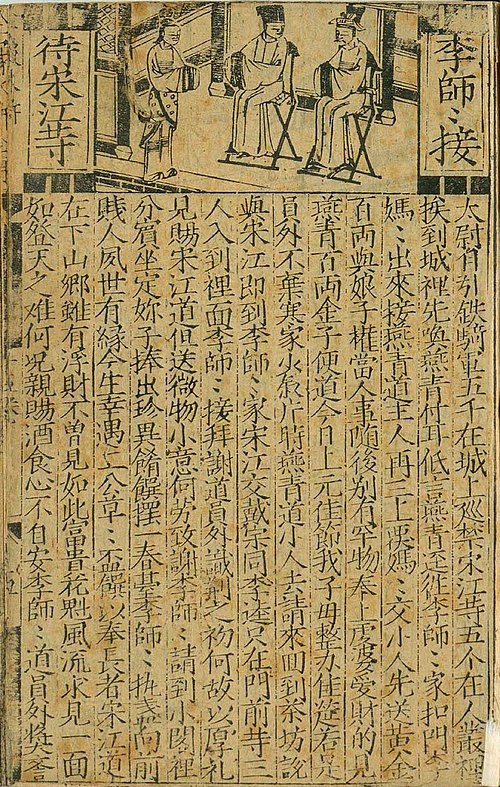 李師〻接
待宋江䒭
太尉自引鉄騎軍五千在城上巡禁宋江䒭五个在人叢裡
挨到城裡先喚燕青付耳低言燕青逕往李師〻家扣門李
媽〻出來接燕青道主人再三上覆媽〻交小人先送黃金
百両與娘子權當人事随後別有罕物奉上虔婆愛財的見
燕青百両金子便道今日上元佳節我子母整办佳筵若是
員外不棄寒家少叙片時燕青道小人去請來回到茶坊說
與宋江即到李師〻家宋江交戴宗同李逵只在門前䒭三
人入到裡面李師〻接拜謝道員外識荆之初何故以厚礼
見賜宋江道但送微物小意何劳致謝李師〻請到小閣裡
分賓坐定妳子捧出珍異餚饌擺一春䑓李師〻执盞向前
賤人夙世有縁今生幸遇二公草〻盃饌以奉長者宋江道
在下山鄉雖有浮財不曾見如此富貴花魁風流求見一面
如登天之难何况親賜酒食心不自安李師〻道員外奬誉